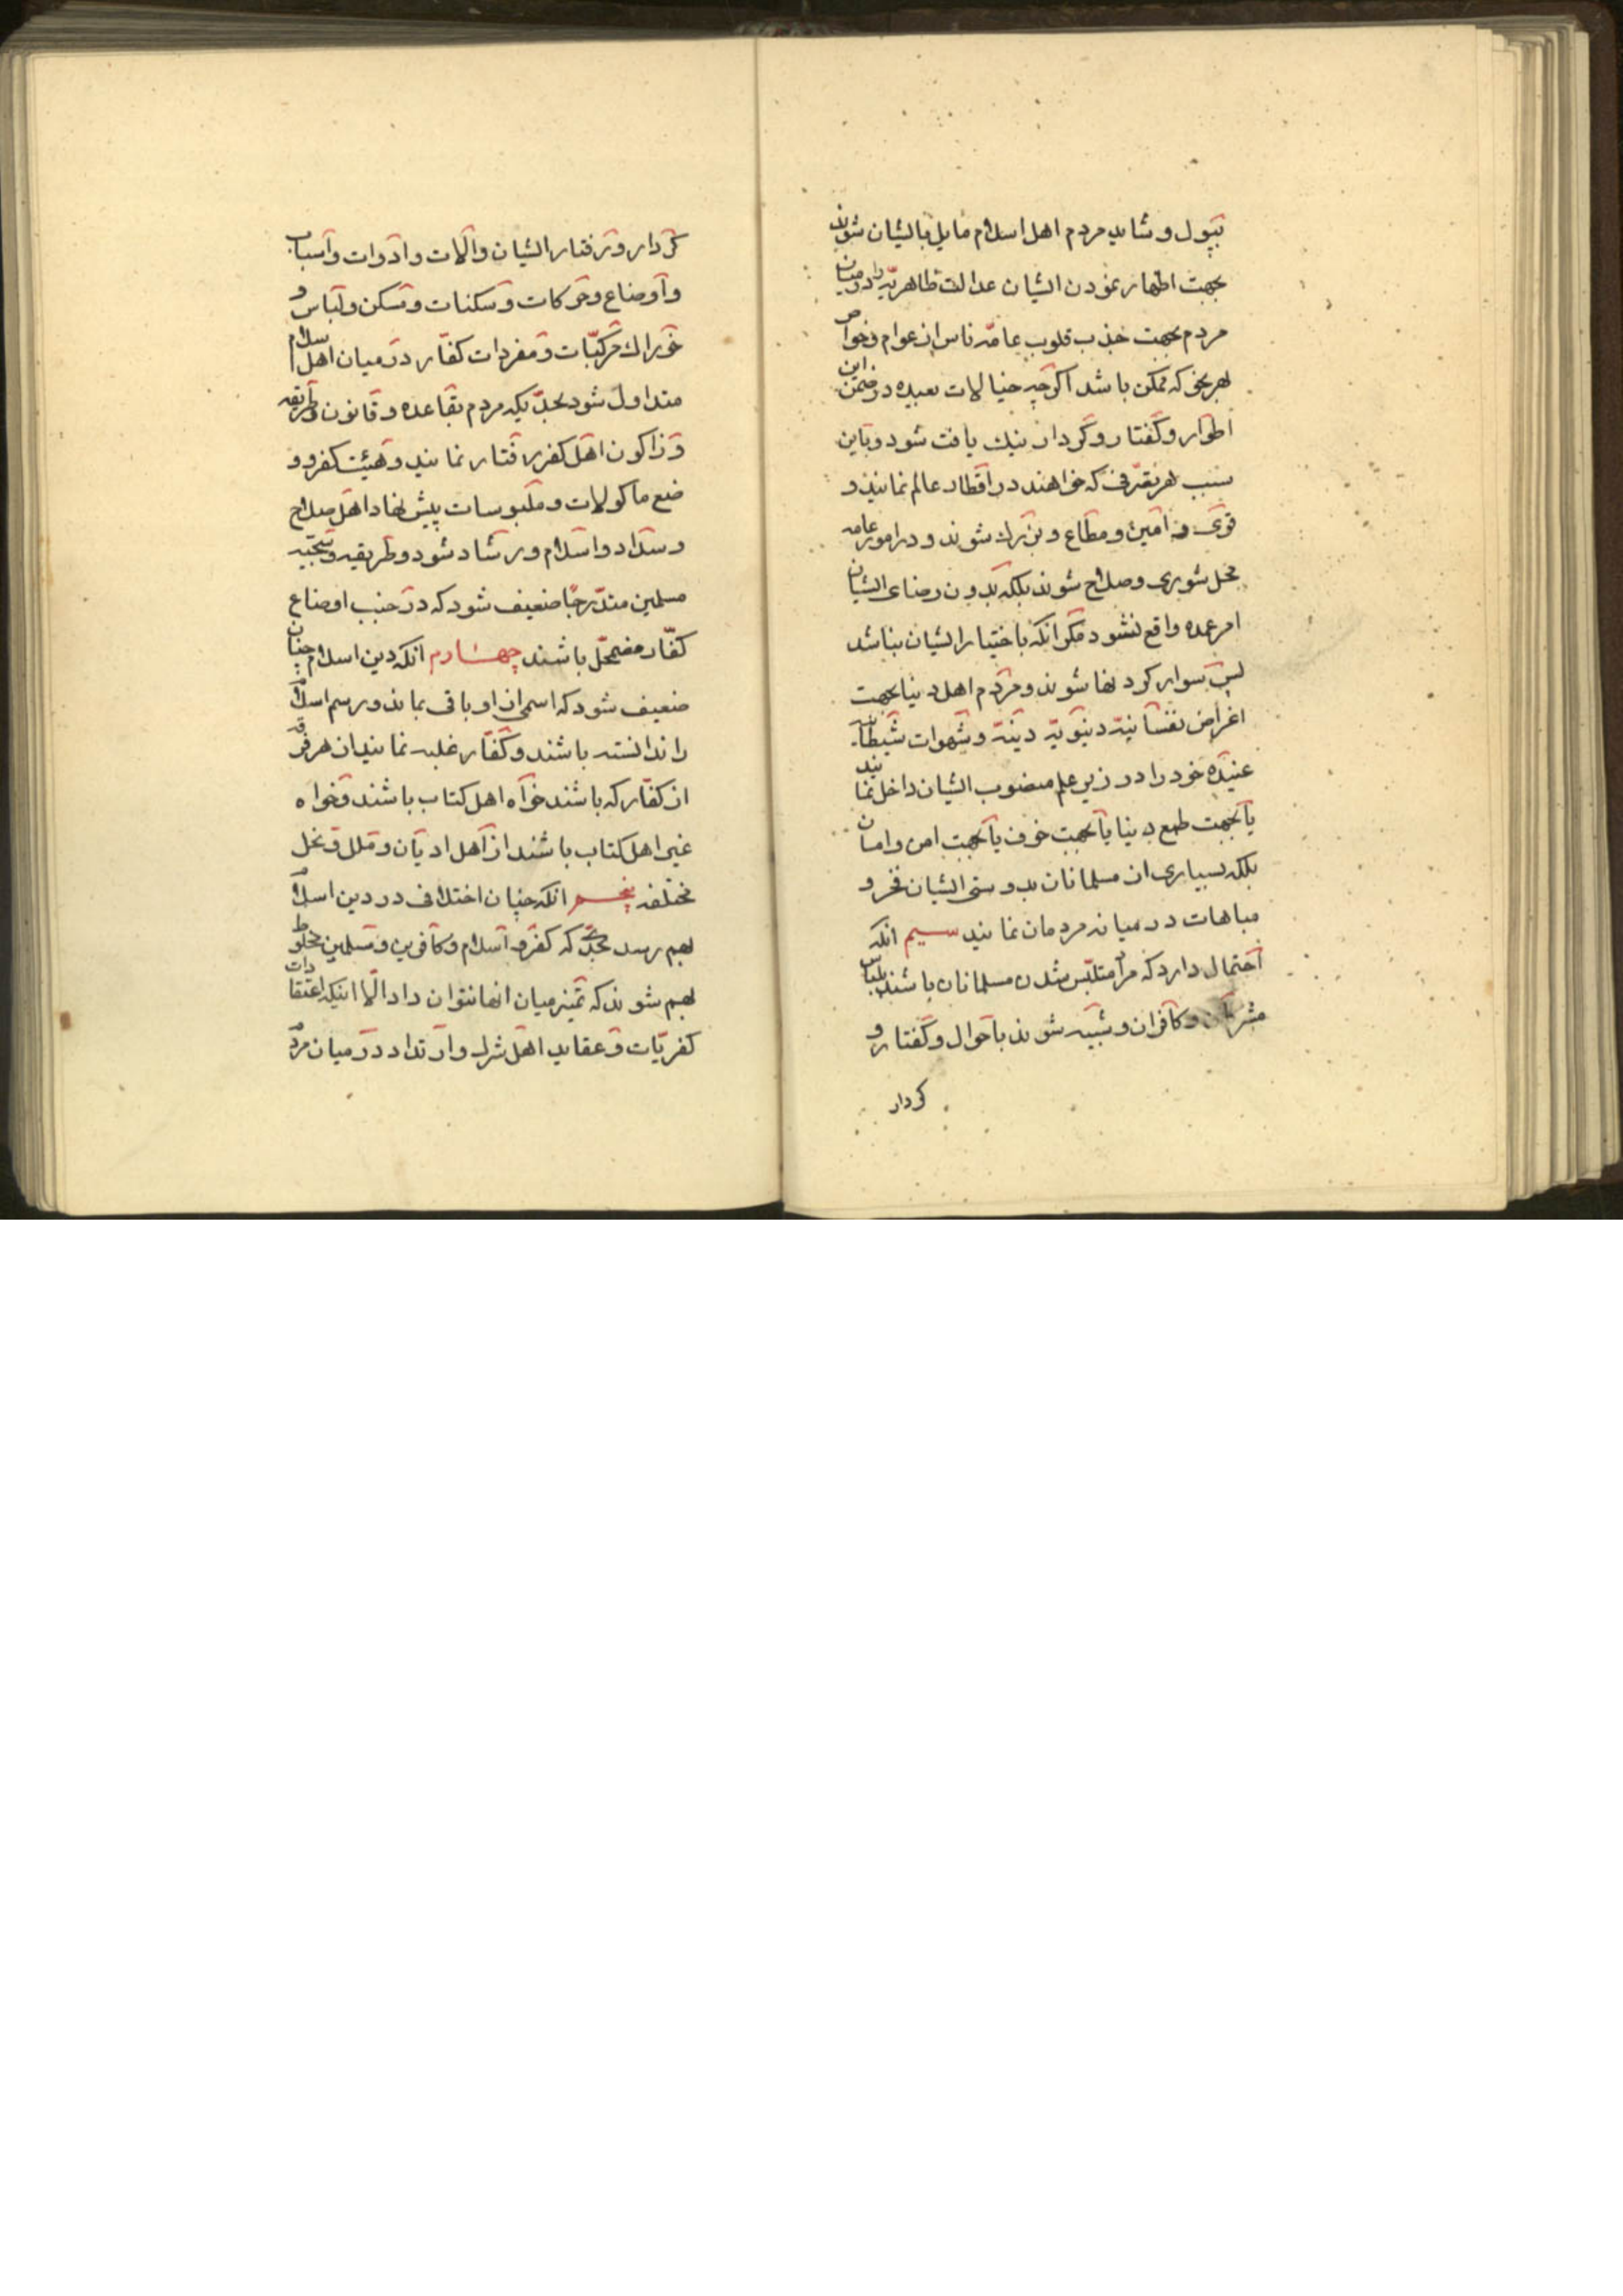 بپول و شاید مردم اهل اسلام مایل بایشان شوند
بجهت اظهار نمودن ایشان عدالت ظاهریه را در میان
مردم بجهت جذب قلوب عامّه ناس از عوام و خواص
بهر نحو که ممکن باشد اگرچه خیالات بعیده در ضمن این
اطوار و گفتار و کردار نیک یافت شود و باین
سبب هر تصرّفی که خواهند در اقطار عالم نمایند و
قوی و امین و مطاع و بزرک شوند و در امور عامه
محل شوری و صلاح شوند بلکه بدون رضای ایشان
امر عمده واقع نشود مکر انکه باختیار ایشان بباشد
پس سوار کردنها شوند و مردم اهل دنیا بجهت
اغراض نفسانیّه دنیویّه دنیّه و شهوات شیطانیه
عنیده خود را در زیر علم منصوب ایشان داخل نمایند
یا بجهت طمع دنیا یا بجهت خوف یا بجهت امن و امان
بلکه بسیاری از مسلمانان بدوستی ایشان فخر و
مباهات در میانه مردمان نمایند سیم انکه
احتمال دارد که مراد متلبّس شدن مسلمانان باشند بلباس
مشرکان و کافران و شبیه شوند باحوال و کفتار و
کردار
کردار و رفتار ایشان و آلات و ادوات و اسباب
و اوضاع و حرکات و سکنات و مسکن و لباس و
خوراک مرکّبات و مفردات کفّار در میان اهل اسلام
متداول شود بحدّیکه مردم بقاعده و قانون و طریقه
و زاکون اهل کفر رفتار نمایند و هیئت کفر و و
ضع ماکولات و ملبوسات پیش نهاد اهل صلاح
و سداد و اسلام و رشاد شود و طریقه و سجیّه
مسلمین متدرّجاً ضعیف شود که در جنب اوضاع
کفّار مضمحلّ باشند چهارم انکه دین اسلام چنان
ضعیف شود که اسمی از او باقی بماند و رسم اسلام
را ندانسته باشند و کفّار غلبه نمایند از هر فرقه
از کفّار که باشند خواه اهل کتاب باشند و خواه
غیر اهل کتاب باشند از اهل ادیان و ملل و نحل
مختلفه پنجم انکه چنان اختلافی در دین اسلام
بهم رسد بحدّی که کفر و اسلام و کافرین و مسلمین مخلوط
بهم شوند که تمیز میان انها نتوان داد الّا اینکه اعتقادات
کفریّات و عقاید اهل شرک و ارتداد در میان مردم